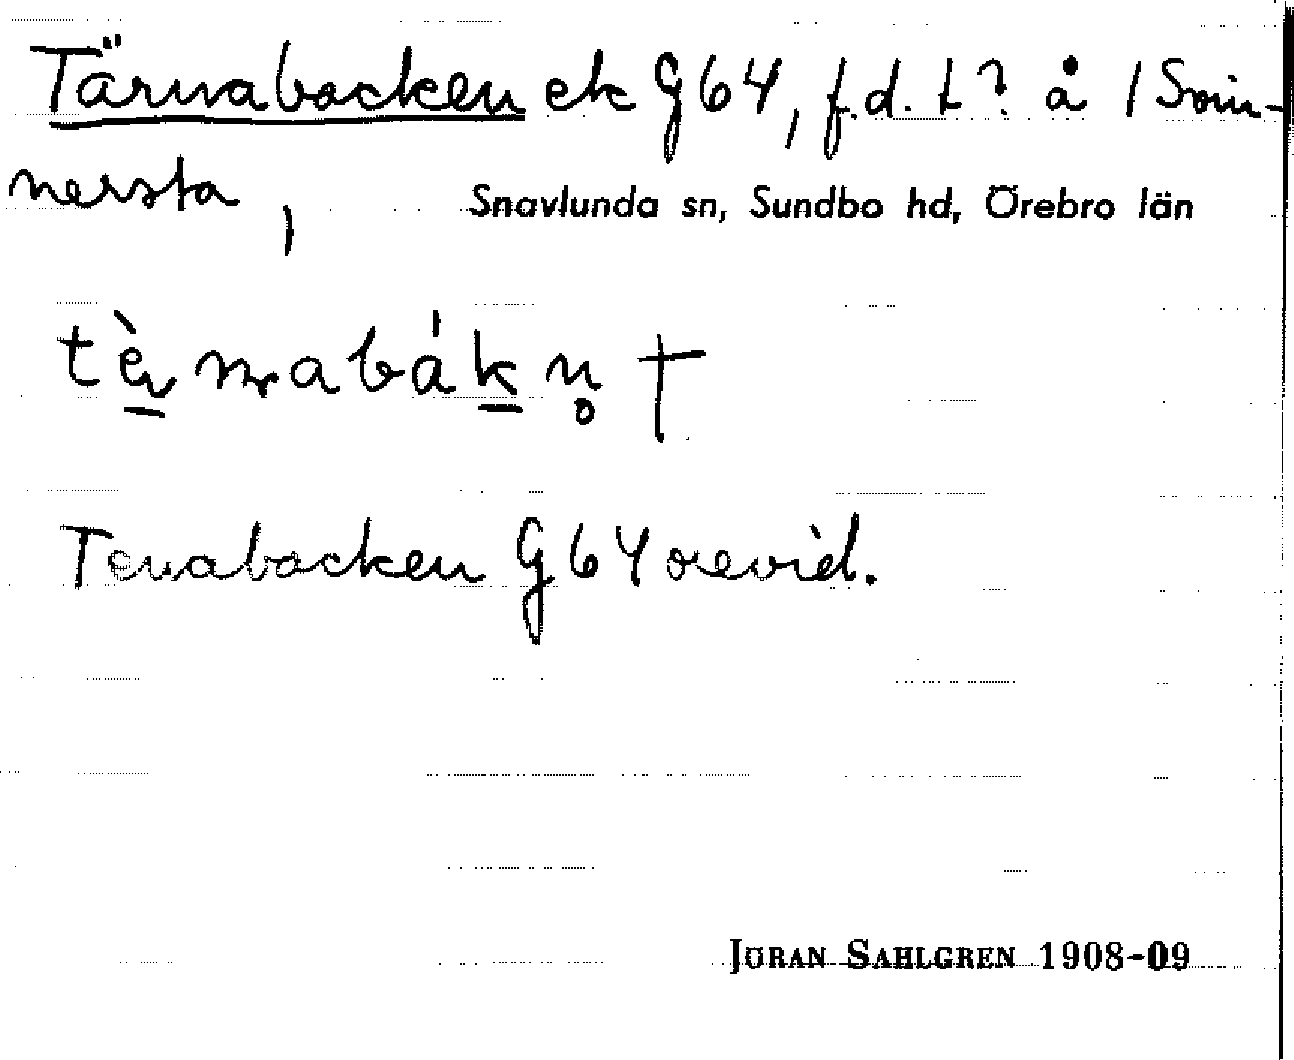 Tärnabacken ek G64, f.d. t? å /Som-
nersta,
Snavlunda sn, Sundbo hd, Örebro län
tɛ̀rnabákn̥ †
Tenabacken G64 orevid.
JÖRAN SAHLGREN 1908-09